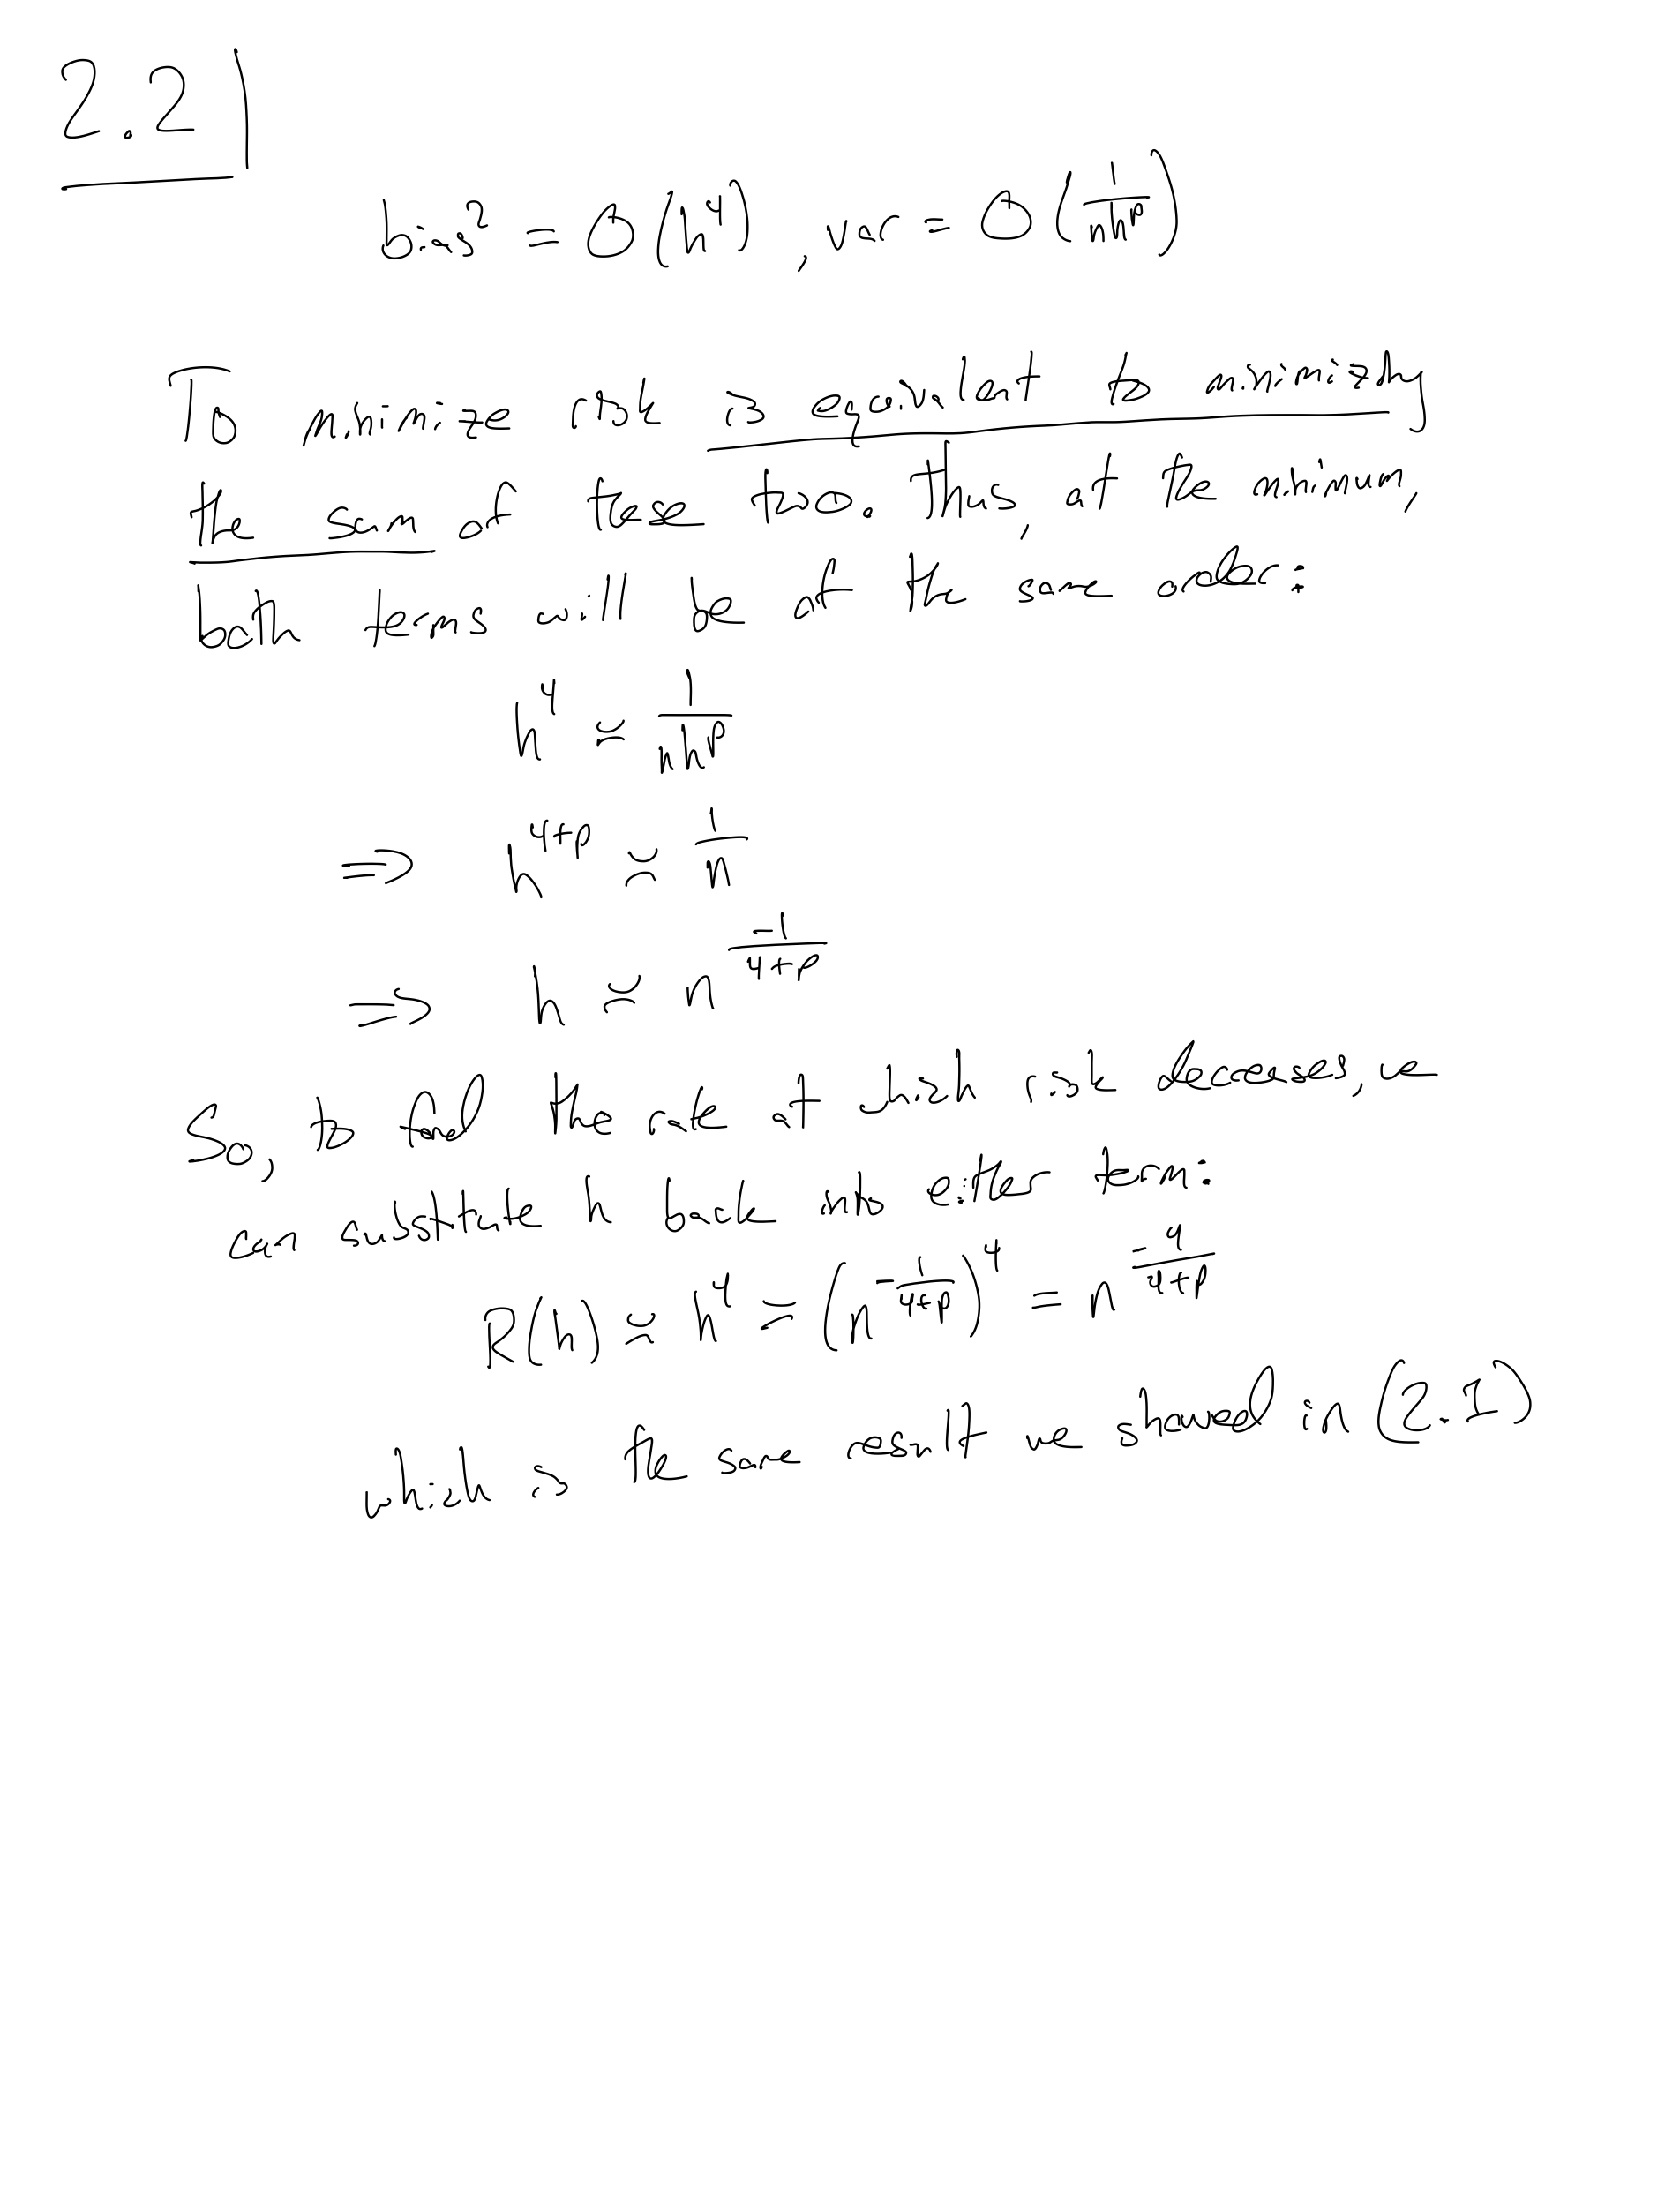 2.2
bias² = O(h⁴), var = O(1/(nhᵖ))
To minimize risk is equivalent to minimizing
the sum of these two. Thus, at the minimum,
both terms will be of the same order:
h⁴ ≍ 1/(nhᵖ)
⇒ h^(4+p) ≍ 1/n
⇒ h ≍ n^(-1/(4+p))
So, to find the rate at which risk decreases, we
can substitute h back into either term:
R(h) ≍ h⁴ = (n^(-1/(4+p)))⁴ = n^(-4/(4+p))
which is the same result we showed in (2.1)